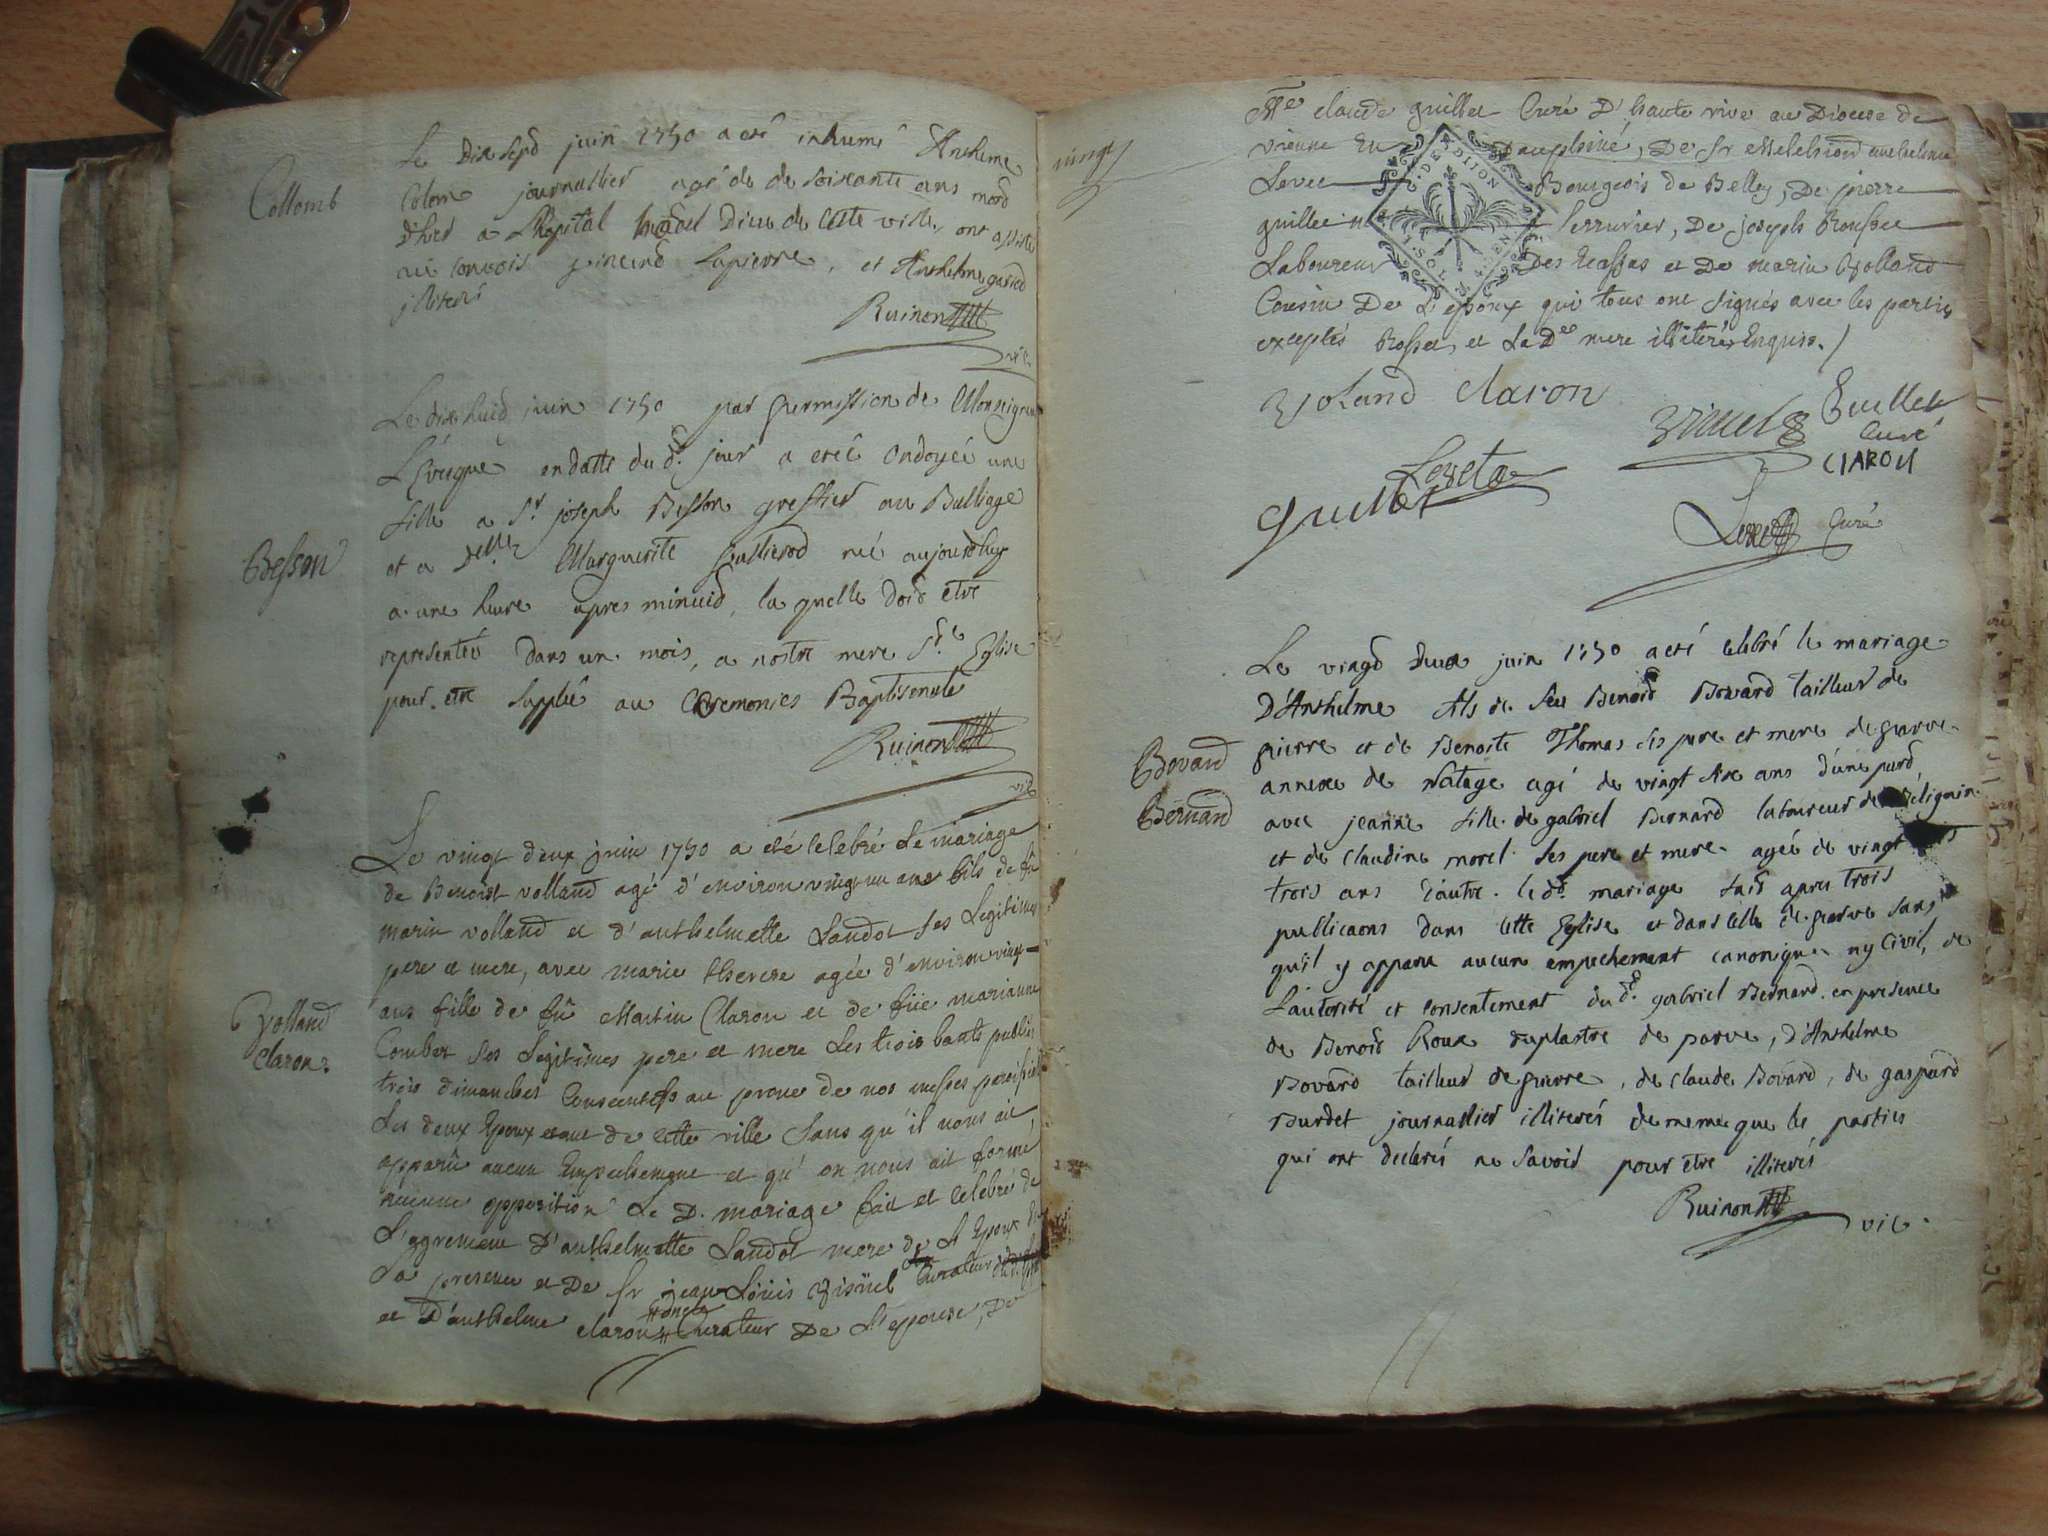 Collomb
Le Dix sept juin 1750 a eté inhumé Anthelme
Colom journallier agé de de soixante ans mord
d'hier a Lhopital Dieu de Cette ville, ont assisté
au convois lapierre, et Anthelme
jlliterés
Ruinon
vic
Besson
Le dix huid juin 1750 par permission de Monseigneur
L'Evesque en datte du d. jour a eteé Ondoyée une
fille a Sr. joseph Besson greffier au Balliage
et a Delle Marguerite née aujourd'huy
a une heure apres minuid, la quelle doid etre
representés dans un mois, a nostre mere Ste Eglise
pour etre Supplée au Ceremonies Baptismale
Ruinon
vic
Volland
Claron
Le vingt deux juin 1750 a eté Celebré Le mariage
de Benoist volland agé d'environ vingt un ans fils de fû
marin volland et d'anthelmette Landot ses Legitimes
pere et mere, avec marie therese agée d'environ vingt
ans fille de fû Martin Claron et de füe marianne
Combet ses Legitimes pere et mere Les trois bants publiés
trois dimanches Consecutifs au prone de nos messes
Les deux Epoux etant de cette ville Sans qu'il nous ait
apparû aucun Empechement et qu'on nous ait formé
aucune opposition Le D. mariage fait et celebré de
L'agrement d'anthelmette Landot mere de L'Epoux
Sa presence et De Sr jean Loüis Curateur
et D'anthelme claron oncle Curateur De L'epouse, De
vingt
Me claude guillet Curé D'haute rive au Diocese de
vienne En Dauphiné, De Sr Melchiord anthelme
Levet Bourgeois de Belley, De pierre
guillet Serrurier, De joseph Rousset
Laboureur Des Ecassas et De marin Volland
Cousin De L'epoux qui tous ont Signés avec les parties
exceptés Rosset et La De mere illiterés Enquis. /
G. DE DIJON
Voland Claron
Guillet
Curé
CLARON
Levet
guillet
Levet Curé
Bovard
Bernard
Le vingd deux juin 1750 a eté celebré le mariage
D'Anthelme fils de feu Benoid Bovard tailleur de
pierre et de Benoite Thomas ses pere et mere de parve
annexe de Natage agé de vingt six ans d'une pard
avec jeanne fille de gabriel Bernard laboureur de Beligain
et de Claudine morel ses pere et mere agée de vingt
trois ans d'autre. le d. mariage faid apres trois
publicaons dans cette Eglise et dans celle de parve sans
qu'il y apparu aucun empechement canonique ny Civil, de
Lautorité et consentement du d. gabriel Bernard en presence
de Benoid Roux de parve, d'Anthelme
Bovard tailleur de pierre, de Claude Bovard, de gaspard
Burdet journallier illiterés de meme que les parties
qui ont declarés ne Savoir pour etre illiterés
Ruinon
vic.